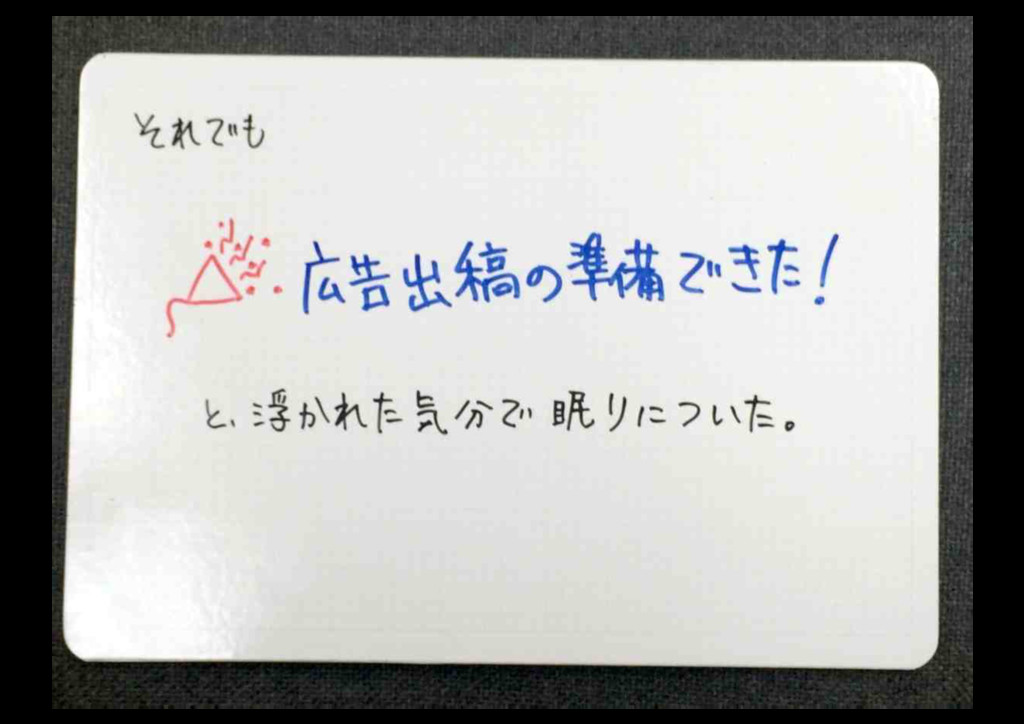 それでも
広告出稿の準備できた！
と、浮かれた気分で眠りについた。